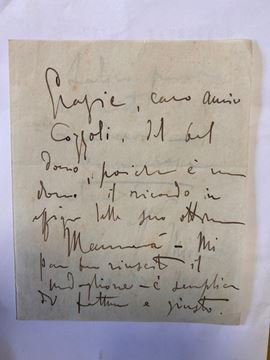 Grazie, caro amico
Cozzoli, del bel
dono, poiché è un
dono il ricordo in
effige della sua ottima
Mammà - Mi
par ben riuscito il
medaglione - è semplice
di fattura e giusto.